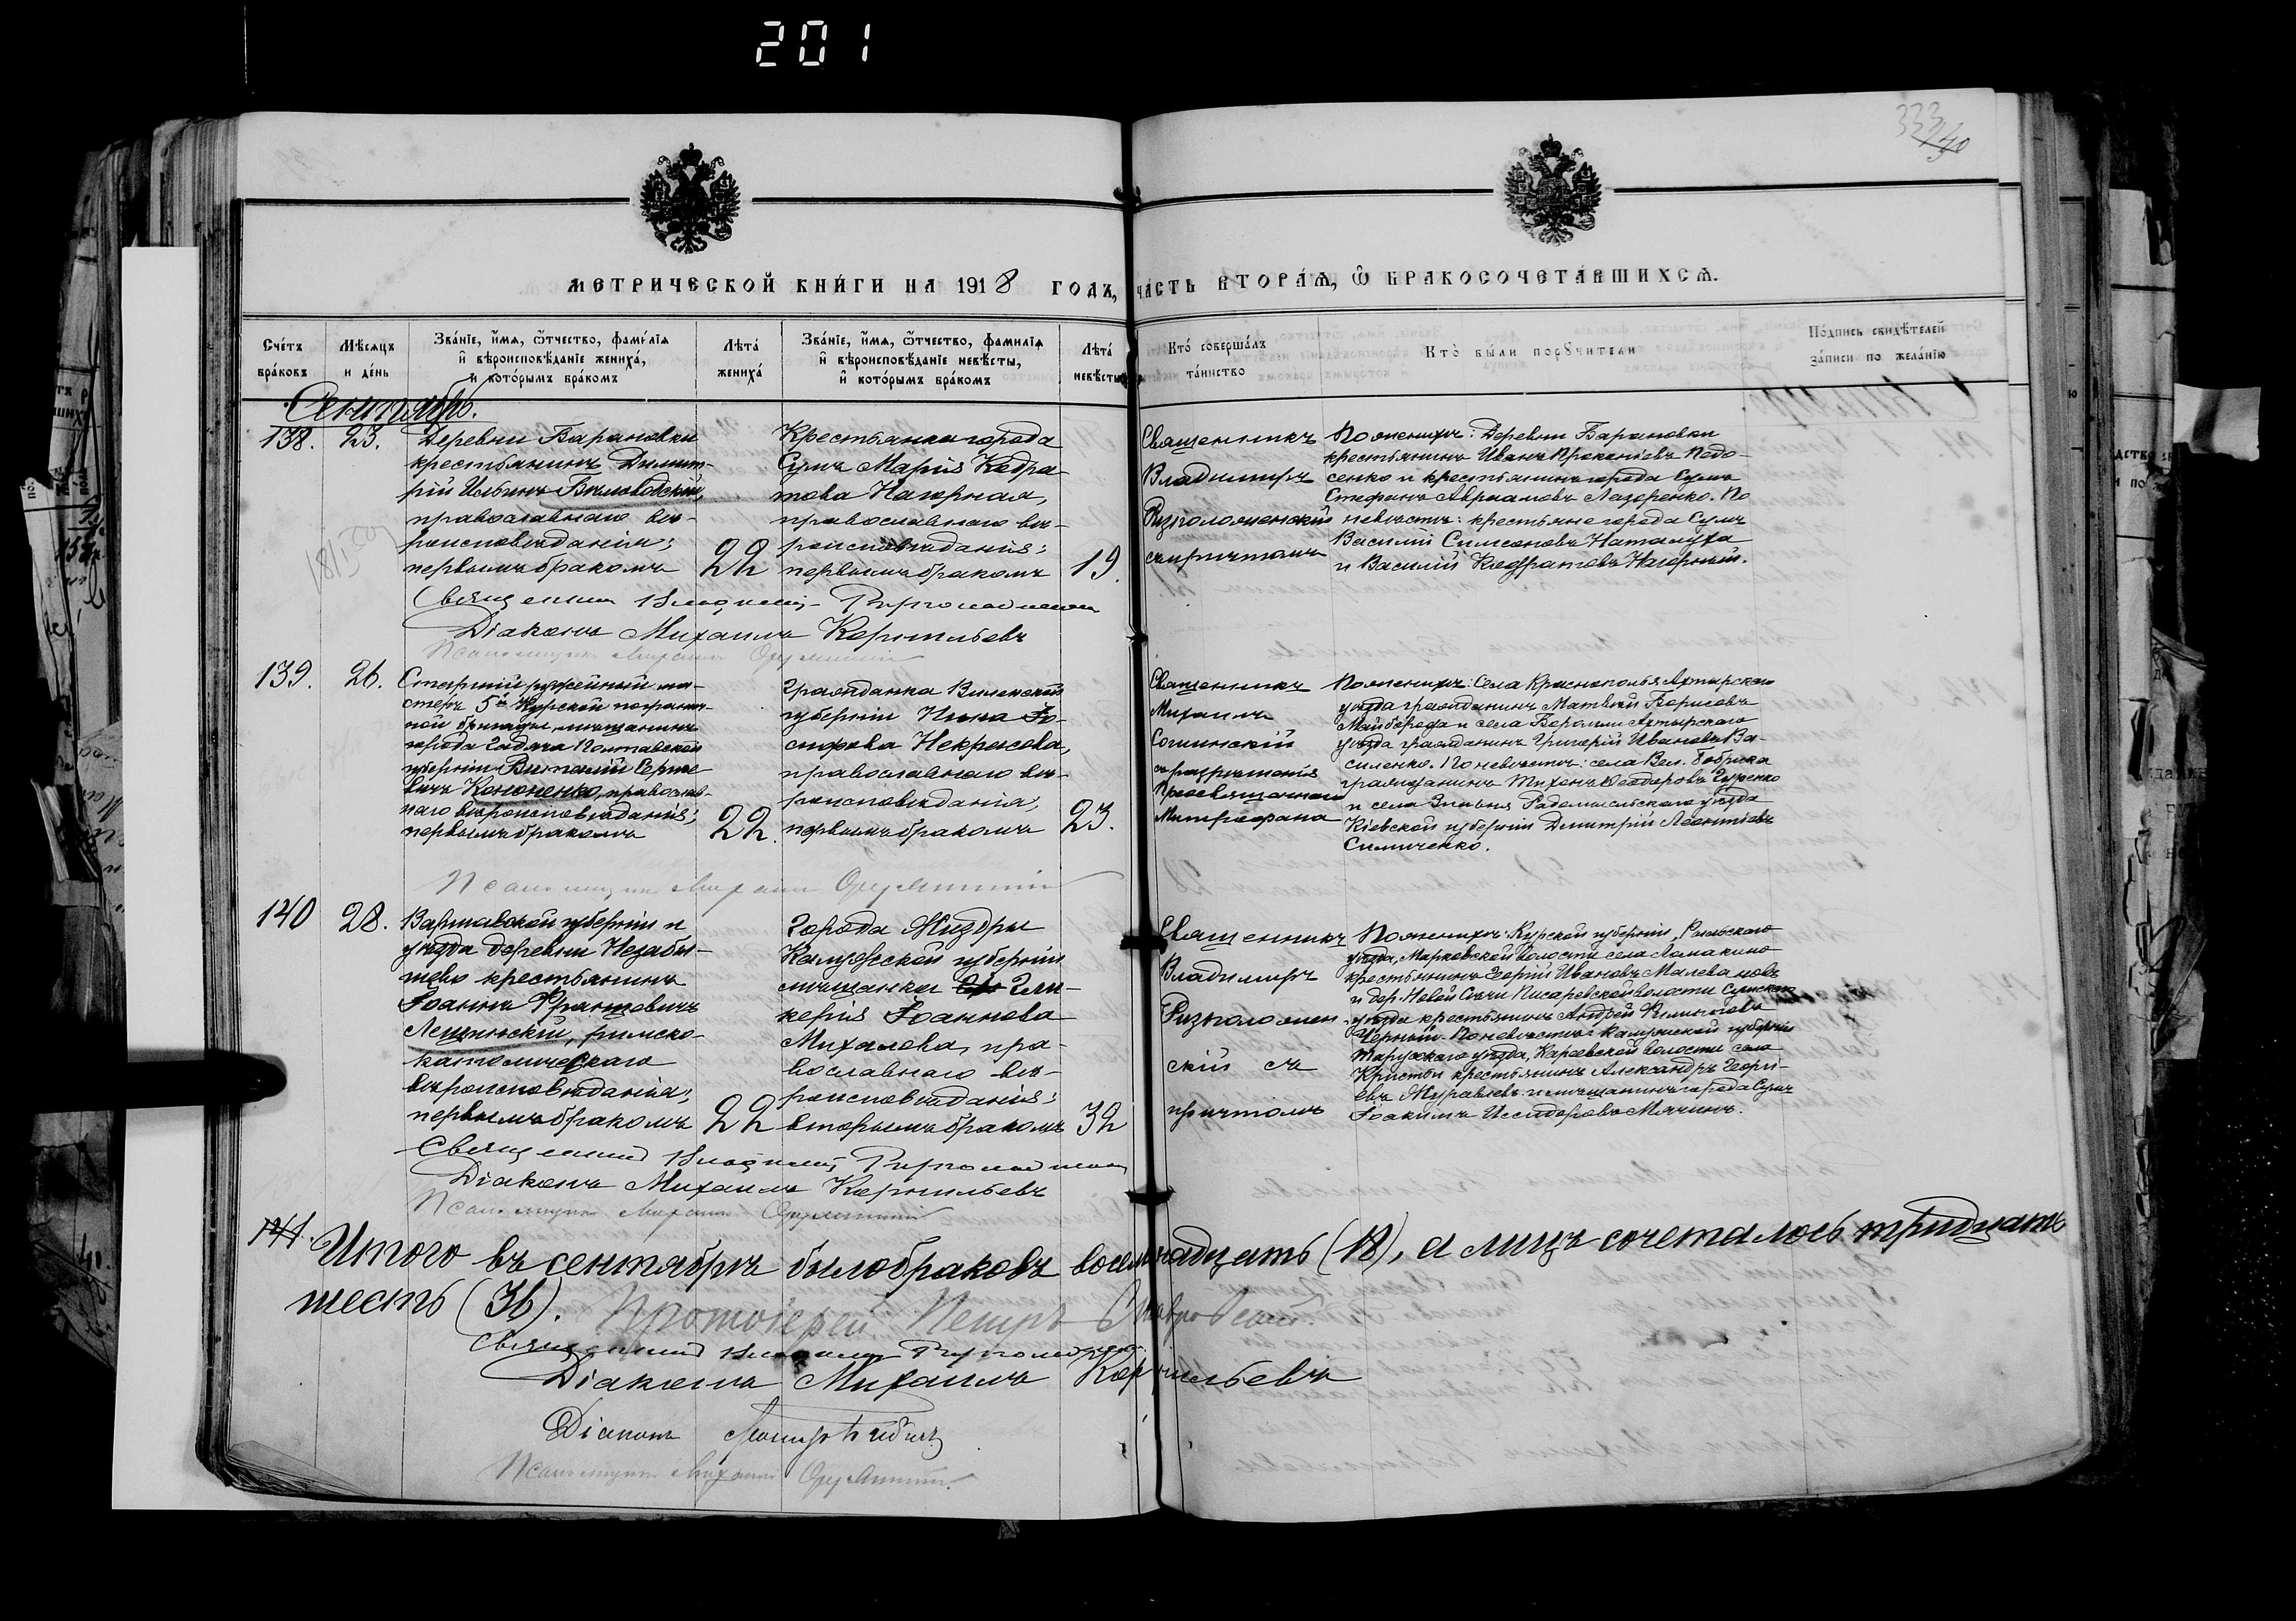 201
333
40
МЕТРИЧЕСКОЙ КНИГИ НА 1918 ГОДЪ, ЧАСТЬ ВТОРАЯ, Ѿ БРАКОСОЧЕТАВШИХСЯ.
Счетъ браковъ
Мѣсяцъ и день
Званіе, имя, ѿчество, фамилія и вѣроисповѣданіе жениха, и которымъ бракомъ
Лѣта жениха
Званіе, имя, ѿчество, фамилія и вѣроисповѣданіе невѣсты, и которымъ бракомъ
Лѣта невѣсты
Кто совершалъ таинство
Кто были поручители
Подпись свидѣтелей записи по желанію
Сентябрь.
138. 23.
Деревни Барановки
крестьянинъ Димит-
рій Ильинъ Виловодскій,
православнаго вѣ-
роисповѣданія;
первымъ бракомъ
22
Крестьянка города
Сумъ Марія Кодра-
това Нагорная,
православнаго вѣ-
роисповѣданія;
первымъ бракомъ
19.
Священникъ
Владимиръ
Ризположенскій
съ причтомъ
По женихѣ: Деревни Барановки
крестьянинъ Иванъ Прокопіевъ Подо-
сенко и крестьянинъ города Сумъ
Стефанъ Авраамовъ Лазаренко. По
невѣстѣ: крестьяне города Сумъ
Василій Симеоновъ Наталуха
и Василій Кодратовъ Нагорный.
Священникъ Владимиръ Ризположенскій
Діаконъ Михаилъ Корнильевъ
Псаломщикъ Михаилъ
139. 26.
Старшій ружейный ма-
стеръ 5й Курской погранич-
ной бригады, мѣщанинъ
города Гадяча Полтавской
губерніи Виталій Сергѣе-
вичъ Кононенко, православ-
наго вѣроисповѣданія;
первымъ бракомъ
22.
Гражданка Виленской
губерніи Нина Іо-
сифова Некрасова,
православнаго вѣ-
роисповѣданія;
первымъ бракомъ
23.
Священникъ
Михаилъ
Сошинскій
съ разрѣшенія
Преосвященнаго
Митрофана
По женихѣ: Села Краснополья Ахтырскаго
уѣзда гражданинъ Матвѣй Борисовъ
Майборода и села Боромли Ахтырскаго
уѣзда гражданинъ Григорій Ивановъ Ва-
силенко. По невѣстѣ: села Вел. Бобрика
гражданинъ Тихонъ Ѳеодоровъ Гуренко
и села Радомысльскаго уѣзда
Кіевской губерніи Димитрій Леонтіевъ
Симиченко.
Псаломщикъ Михаилъ
140 28.
Варшавской губерніи и
уѣзда деревни Незабы-
шево крестьянинъ
Іоаннъ Францевичъ
Лещинскій, римско-
католическаго
вѣроисповѣданія;
первымъ бракомъ
22
Города Жиздры
Калужской губерніи
мѣщанка Гли-
керія Іоаннова
Михалева, пра-
вославнаго вѣ-
роисповѣданія;
вторымъ бракомъ
32
Священникъ
Владимиръ
Ризположен-
скій съ
причтомъ
По женихѣ: Курской губерніи, Рыльскаго
уѣзда, Марковской волости села Ломакино
крестьянинъ Георгій Ивановъ Малевановъ
и дер. Новой Сѣчи Писаревской волости Сумскаго
уѣзда крестьянинъ Андрей Филипповъ
Черный. По невѣстѣ: Калужской губерніи
Тарусскаго уѣзда, Каревской волости села
Кристы крестьянинъ Александръ Георгі-
евъ Журавлевъ и мѣщанинъ города Сумъ
Іоакимъ Исидоровъ Мячинъ.
Священникъ Владимиръ Ризположенскій
Діаконъ Михаилъ Корнильевъ
Псаломщикъ Михаилъ
141.
Итого въ сентябрѣ было браковъ восемнадцать (18), а лицъ сочеталось тридцать
шесть (36). Протоіерей Петръ
Священникъ Владимиръ Ризположенскій
Діаконъ Михаилъ Корнильевъ
Діаконъ
Псаломщикъ Михаилъ